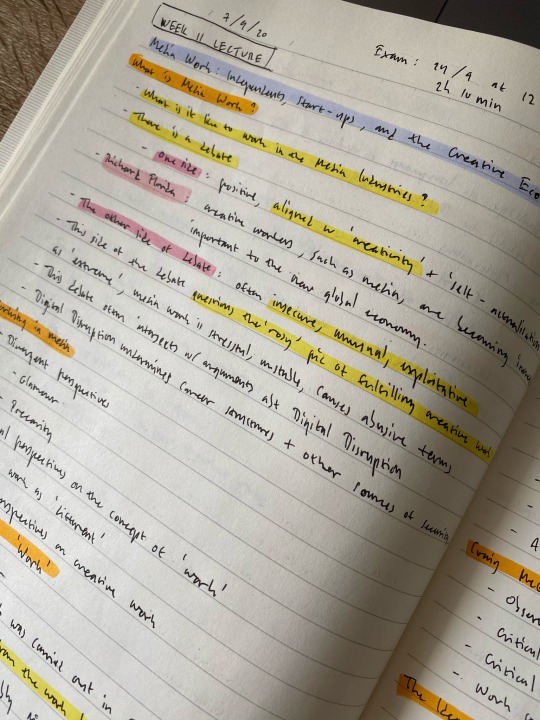 7/9/20
WEEK 11 LECTURE
Exam: 24/9 at 12
2h 10 min
Media Work: Independents, Start-ups, and the Creative Eco
What is Media Work?
- What is it like to work in the Media Industries?
- There is a debate
- one side: positive, aligned w 'creativity' + 'self-actualisation
- Richard Florida: creative workers, such as media, are becoming
important to the new global economy.
- The other side of debate: often insecure, unequal, exploitative
- This side of the debate questions the rosy pic of fulfilling creative work
as 'extreme', media work is stressful, unstable, causes abusive terms
- This debate often intersects w/ arguments abt Digital Disruption
- Digital Disruption undermines career structures + other sources of security
in media
- Divergent perspectives
- Glamour
- Precarity
perspectives on the concept of 'work'
work as 'different'
perspectives on creative work
'Work'
was carried out in
from the work
Craig
- Observ
- Critical
- Critical
- Work
The